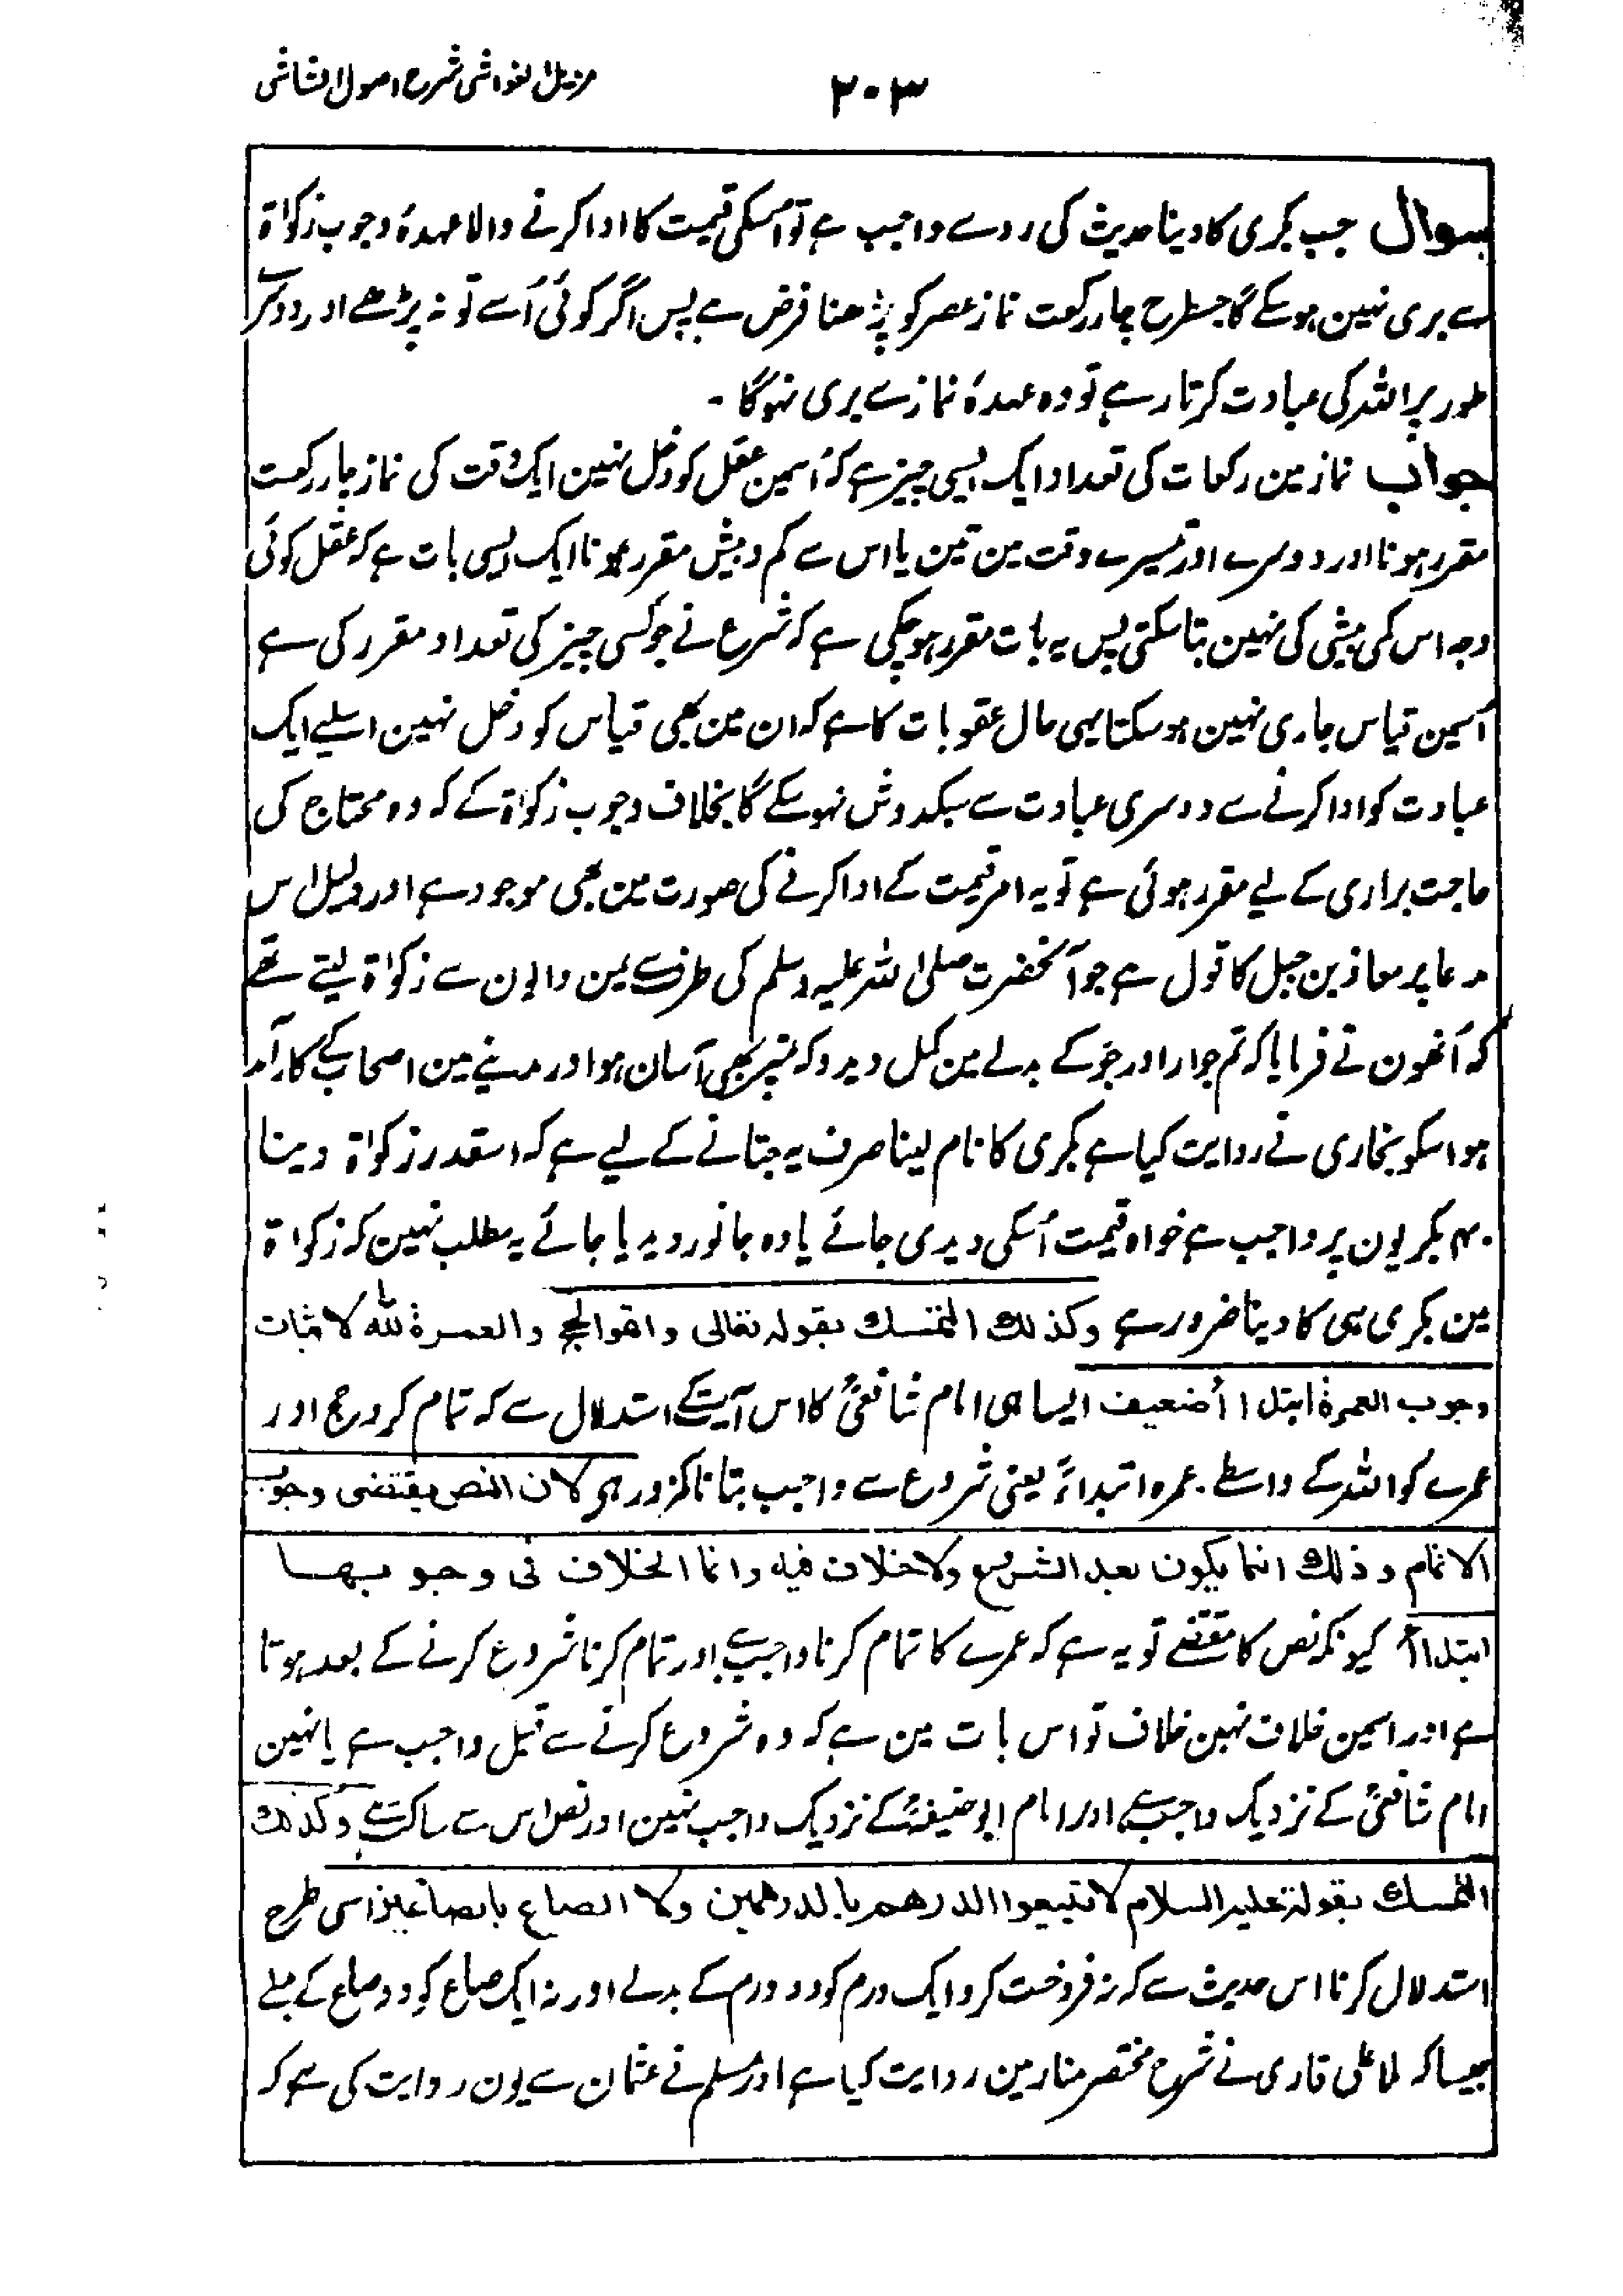 ۲۰۳
مزیل الغواشی شرح اصول الشاشی
سوال جب بکری کا دینا حدیث کی رو سے واجب ہے تو اُسکی قیمت کا ادا کرنے والا عہدۂ وجوب زکوٰۃ
سے بری نہین ہوسکے گا جسطرح چار رکعت نماز عصر کو پڑھنا فرض ہے پس اگر کوئی اُسے تو نہ پڑھے اور دوسرے
طور پر اللہ کی عبادت کرتا رہے تو وہ عہدۂ نماز سے بری نہوگا -
جواب نماز مین رکعات کی تعداد ایک ایسی چیز ہے کہ اُسمین عقل کو دخل نہین ایک وقت کی نماز چار رکعت
مقرر ہونا اور دوسرے اور تیسرے وقت مین تین یا اس سے کم و بیش مقرر ہونا ایک ایسی بات ہے کہ عقل کوئی
وجہ اس کمی بیشی کی نہین بتا سکتی پس یہ بات مقرر ہوچکی ہے کہ شرع نے جو کسی چیز کی تعداد مقرر کی ہے
اُسمین قیاس جاری نہین ہو سکتا یہی حال عقوبات کا ہے کہ ان مین بھی قیاس کو دخل نہین اسلیے ایک
عبادت کو ادا کرنے سے دوسری عبادت سے سبکدوش نہوسکے گا بخلاف وجوب زکوٰۃ کے کہ وہ محتاج کی
حاجت براری کے لیے مقرر ہوئی ہے تو یہ امر قیمت کے ادا کرنے کی صورت مین بھی موجود ہے اور دلیل اس
مدعا پر معاذ بن جبل کا قول ہے جو آنحضرت صلی اللہ علیہ وسلم کی طرف سے یمن والون سے زکوٰۃ لیتے تھے
کہ اُنھون نے فرمایا کہ تم جوار اور جو کے بدلے مین کمل دیدو کہ تمپر بھی آسان ہو اور مدینے مین اصحاب کے کارآمد
ہو اسکو بخاری نے روایت کیا ہے بکری کا نام لینا صرف یہ جتانے کے لیے ہے کہ اسقدر زکوٰۃ دینا
۴۰ بکریون پر واجب ہے خواہ قیمت اُسکی دیدی جائے یا وہ جانور دیدیا جائے یہ مطلب نہین کہ زکوٰۃ
مین بکری ہی کا دینا ضرور ہے وکذلك التمسك بقوله تعالى واتموا الحج والعمرة لله لاثبات
وجوب العمرة ابتداءً ضعيف ایسا ہی امام شافعیؒ کا اس آیت کے استدلال سے کہ تمام کرو حج اور
عمرے کو اللہ کے واسطے ۔ عمرہ ابتداءً یعنی شروع سے واجب بتانا کمزور ہے لان النص يقتضى وجوب
الاتمام وذلك انما يكون بعد الشروع ولا خلاف فيه وانما الخلاف فى وجوبها
ابتداءً کیونکہ نص کا مقتضے تو یہ ہے کہ عمرے کا تمام کرنا واجب ہے اور تمام کرنا شروع کرنے کے بعد ہوتا
ہے اور اسمین خلاف نہین خلاف تو اس بات مین ہے کہ وہ شروع کرنے سے قبل واجب ہے یا نہین
امام شافعیؒ کے نزدیک واجب ہے اور امام ابو حنیفہؒ کے نزدیک واجب نہین اور نص اس سے ساکت ہے وكذلك
التمسك بقوله عليه السلام لا تبيعوا الدرهم بالدرهمين ولا الصاع بالصاعين اسی طرح
استدلال کرنا اس حدیث سے کہ نہ فروخت کرو ایک درم کو دو درم کے بدلے اور نہ ایک صاع کو دو صاع کے بدلے
جیسا کہ ملا علی قاری نے شرح مختصر منار مین روایت کیا ہے اور مسلم نے عثمان سے یون روایت کی ہے کہ